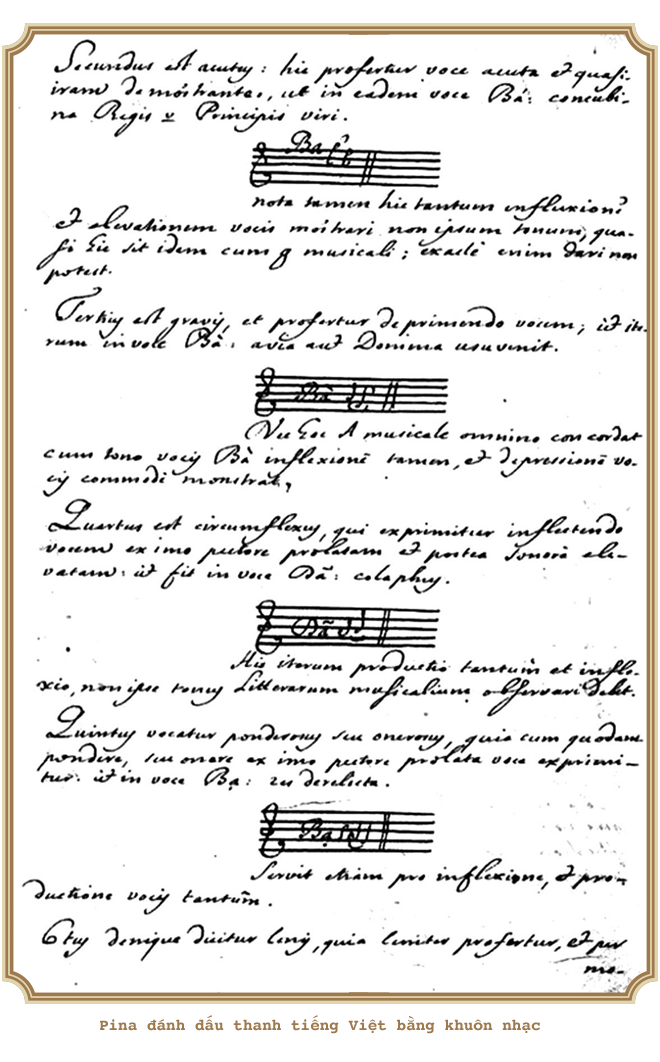 Secundus est acutus: hic profertur voce acuta et quasi
iram demõstrante, ut in eadem voce Bá: concubi-
na Regis Principis viri.
Ba
nota tamen hic tantum inflexionẽ
et elevationem vocis mõstrari non ipsum tonum, qua-
si hic sit idem cum musicali; exactè enim dari non
potest.
Tertius est gravis, et profertur deprimendo vocem; ut ite-
rum in voce Bà: avia aut Domina usu venit.
Bà
Vbi hoc A musicale omnino concordat
cum tono vocis Bà inflexionẽ tamen, et depressionẽ vo-
cis commodè monstrat,
Quartus est circumflexus, qui exprimitur inflectendo
vocem ex imo pectore prolatam et postea sonorã ele-
vatam: ut fit in voce Bã: colaphus.
Bã
Hic iterum productio tantum et infle-
xio, non ipse tonus Litterarum musicalium observari debet.
Quintus vocatur ponderosus seu onerosus, quia cum quodam
pondere, seu onere ex imo pectore prolata voce exprimi-
tur: ut in voce Bạ: res derelicta.
Bạ
Servit etiam pro inflexione, et pro-
ductione vocis tantum.
6tus denique dicitur lenis, quia leniter profertur, et per
mo-
Pina đánh dấu thanh tiếng Việt bằng khuôn nhạc